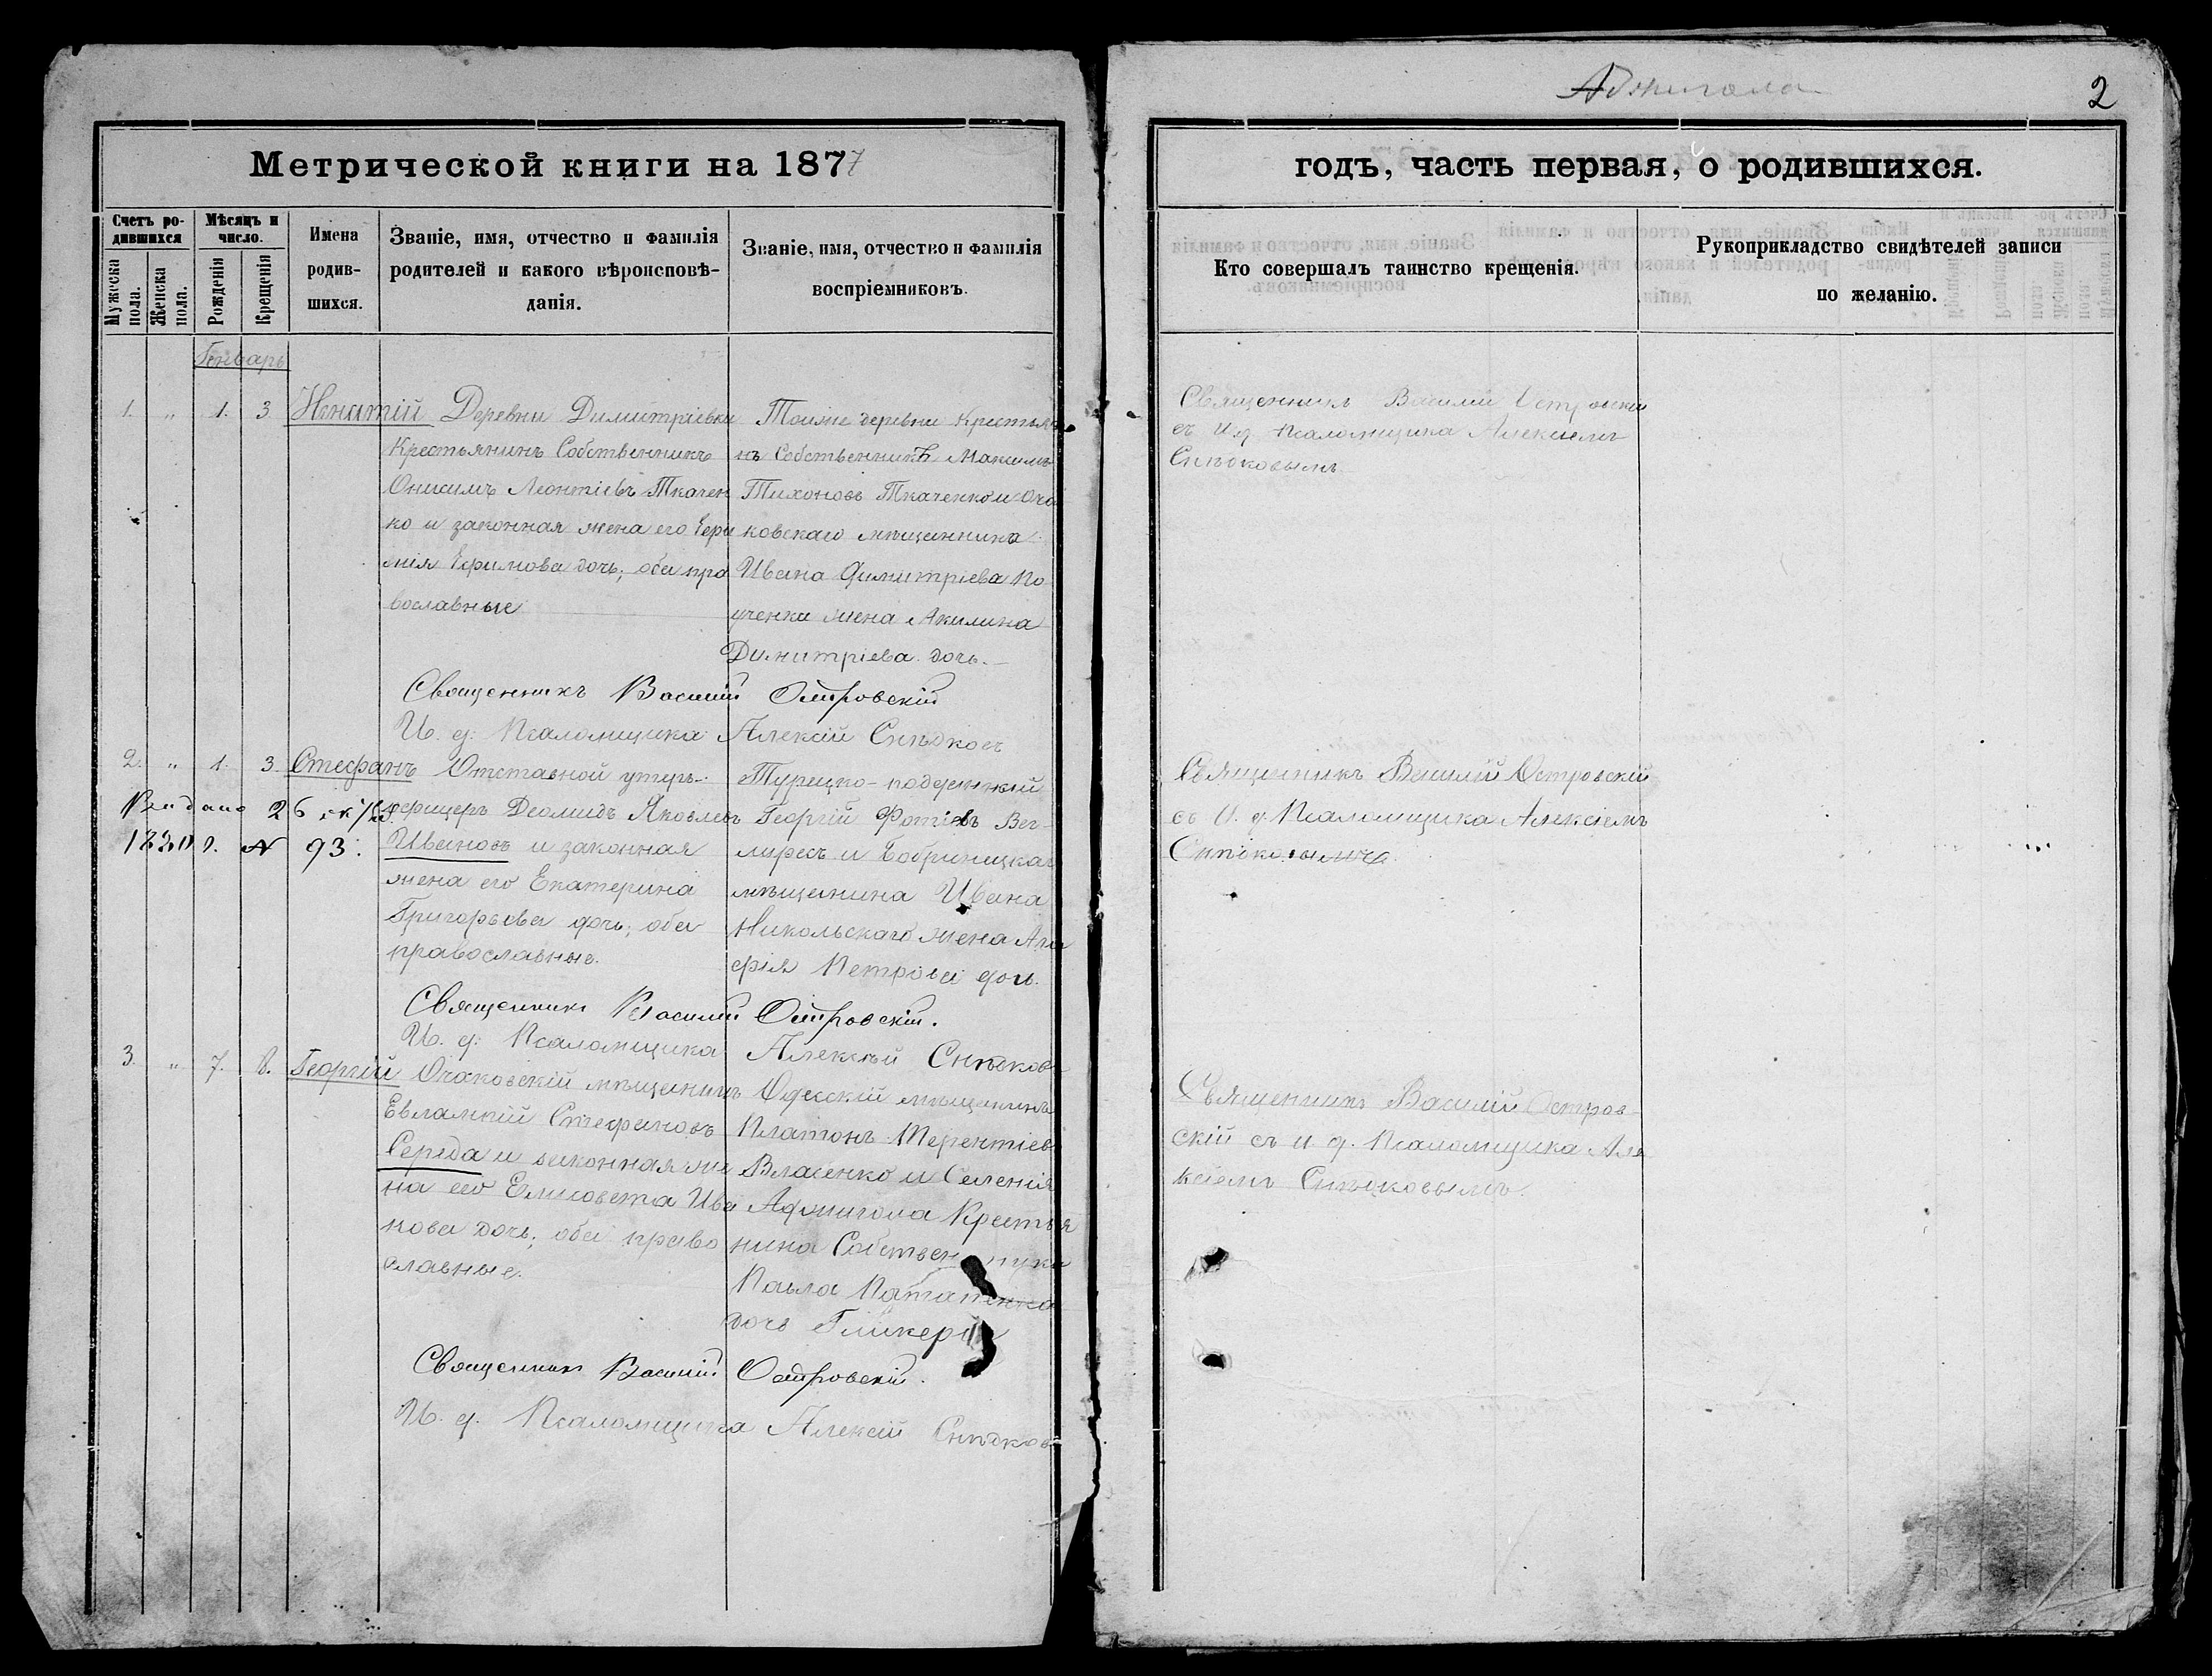 Аджигола
2
Метрической книги на 1877
годъ, часть первая, о родившихся.
Счетъ ро-
дившихся
Мужеска
пола.
Женска
пола.
Мѣсяцъ и
число.
Рожденія
Крещенія
Имена
родив-
шихся.
Званіе, имя, отчество и фамилія
родителей и какого вѣроисповѣ-
данія.
Званіе, имя, отчество и фамилія
воспріемниковъ.
Кто совершалъ таинство крещенія.
Рукоприкладство свидѣтелей записи
по желанію.
Генварь
1. " 1. 3 Игнатій
Деревни Димитріевки
Крестьянинъ Собственникъ
Онисимъ Леонтіевъ Ткачен
ко и законная жена его
Ефимова дочь; оба пра
вославные
Тойже деревни Крестьяни
нъ Собственникъ Максимъ
Тихоновъ Ткаченко и Оча
ковскаго мѣщанина
Ивана Димитріева
жена Акилина
Димитріева дочь.
Священникъ Василій Островскій
съ И. д. Псаломщика Алексіемъ
Снѣдковымъ
Священникъ Василій Островскій
И. д. Псаломщика Алексій Снѣдковъ
2. " 1. 3 Стефанъ
Отставной унтеръ-
офицеръ Діомидъ Яковлевъ
Ивановъ и законная
жена его Екатерина
Григорьева дочь; оба
православные.
Выдано 26
1880 г. № 93.
Турецко-подданный
Георгій Фотіевъ
и Бобринецкаго
мѣщанина Ивана
Никольскаго жена Ага
фія Петрова дочь.
Священникъ Василій Островскій
съ И. д. Псаломщика Алексіемъ
Снѣдковымъ.
Священникъ Василій Островскій.
И. д. Псаломщика Алексѣй Снѣдковъ
3. " 7. 8. Георгій
Очаковскій мѣщанинъ
Евлампій Стефановъ
Середа и законная же
на его Елисавета Ива
нова дочь; оба право
славные.
Одесскій мѣщанинъ
Платонъ Терентіевъ
Власенко и Селенія
Аджигола Крестья
нина Собственника
Павла
дочь Гликерія
Священникъ Василій Островскій
скій съ и. д. Псаломщика Але
ксіемъ Снѣдковымъ.
Священникъ Василій Островскій.
И. д. Псаломщика Алексій Снѣдковъ